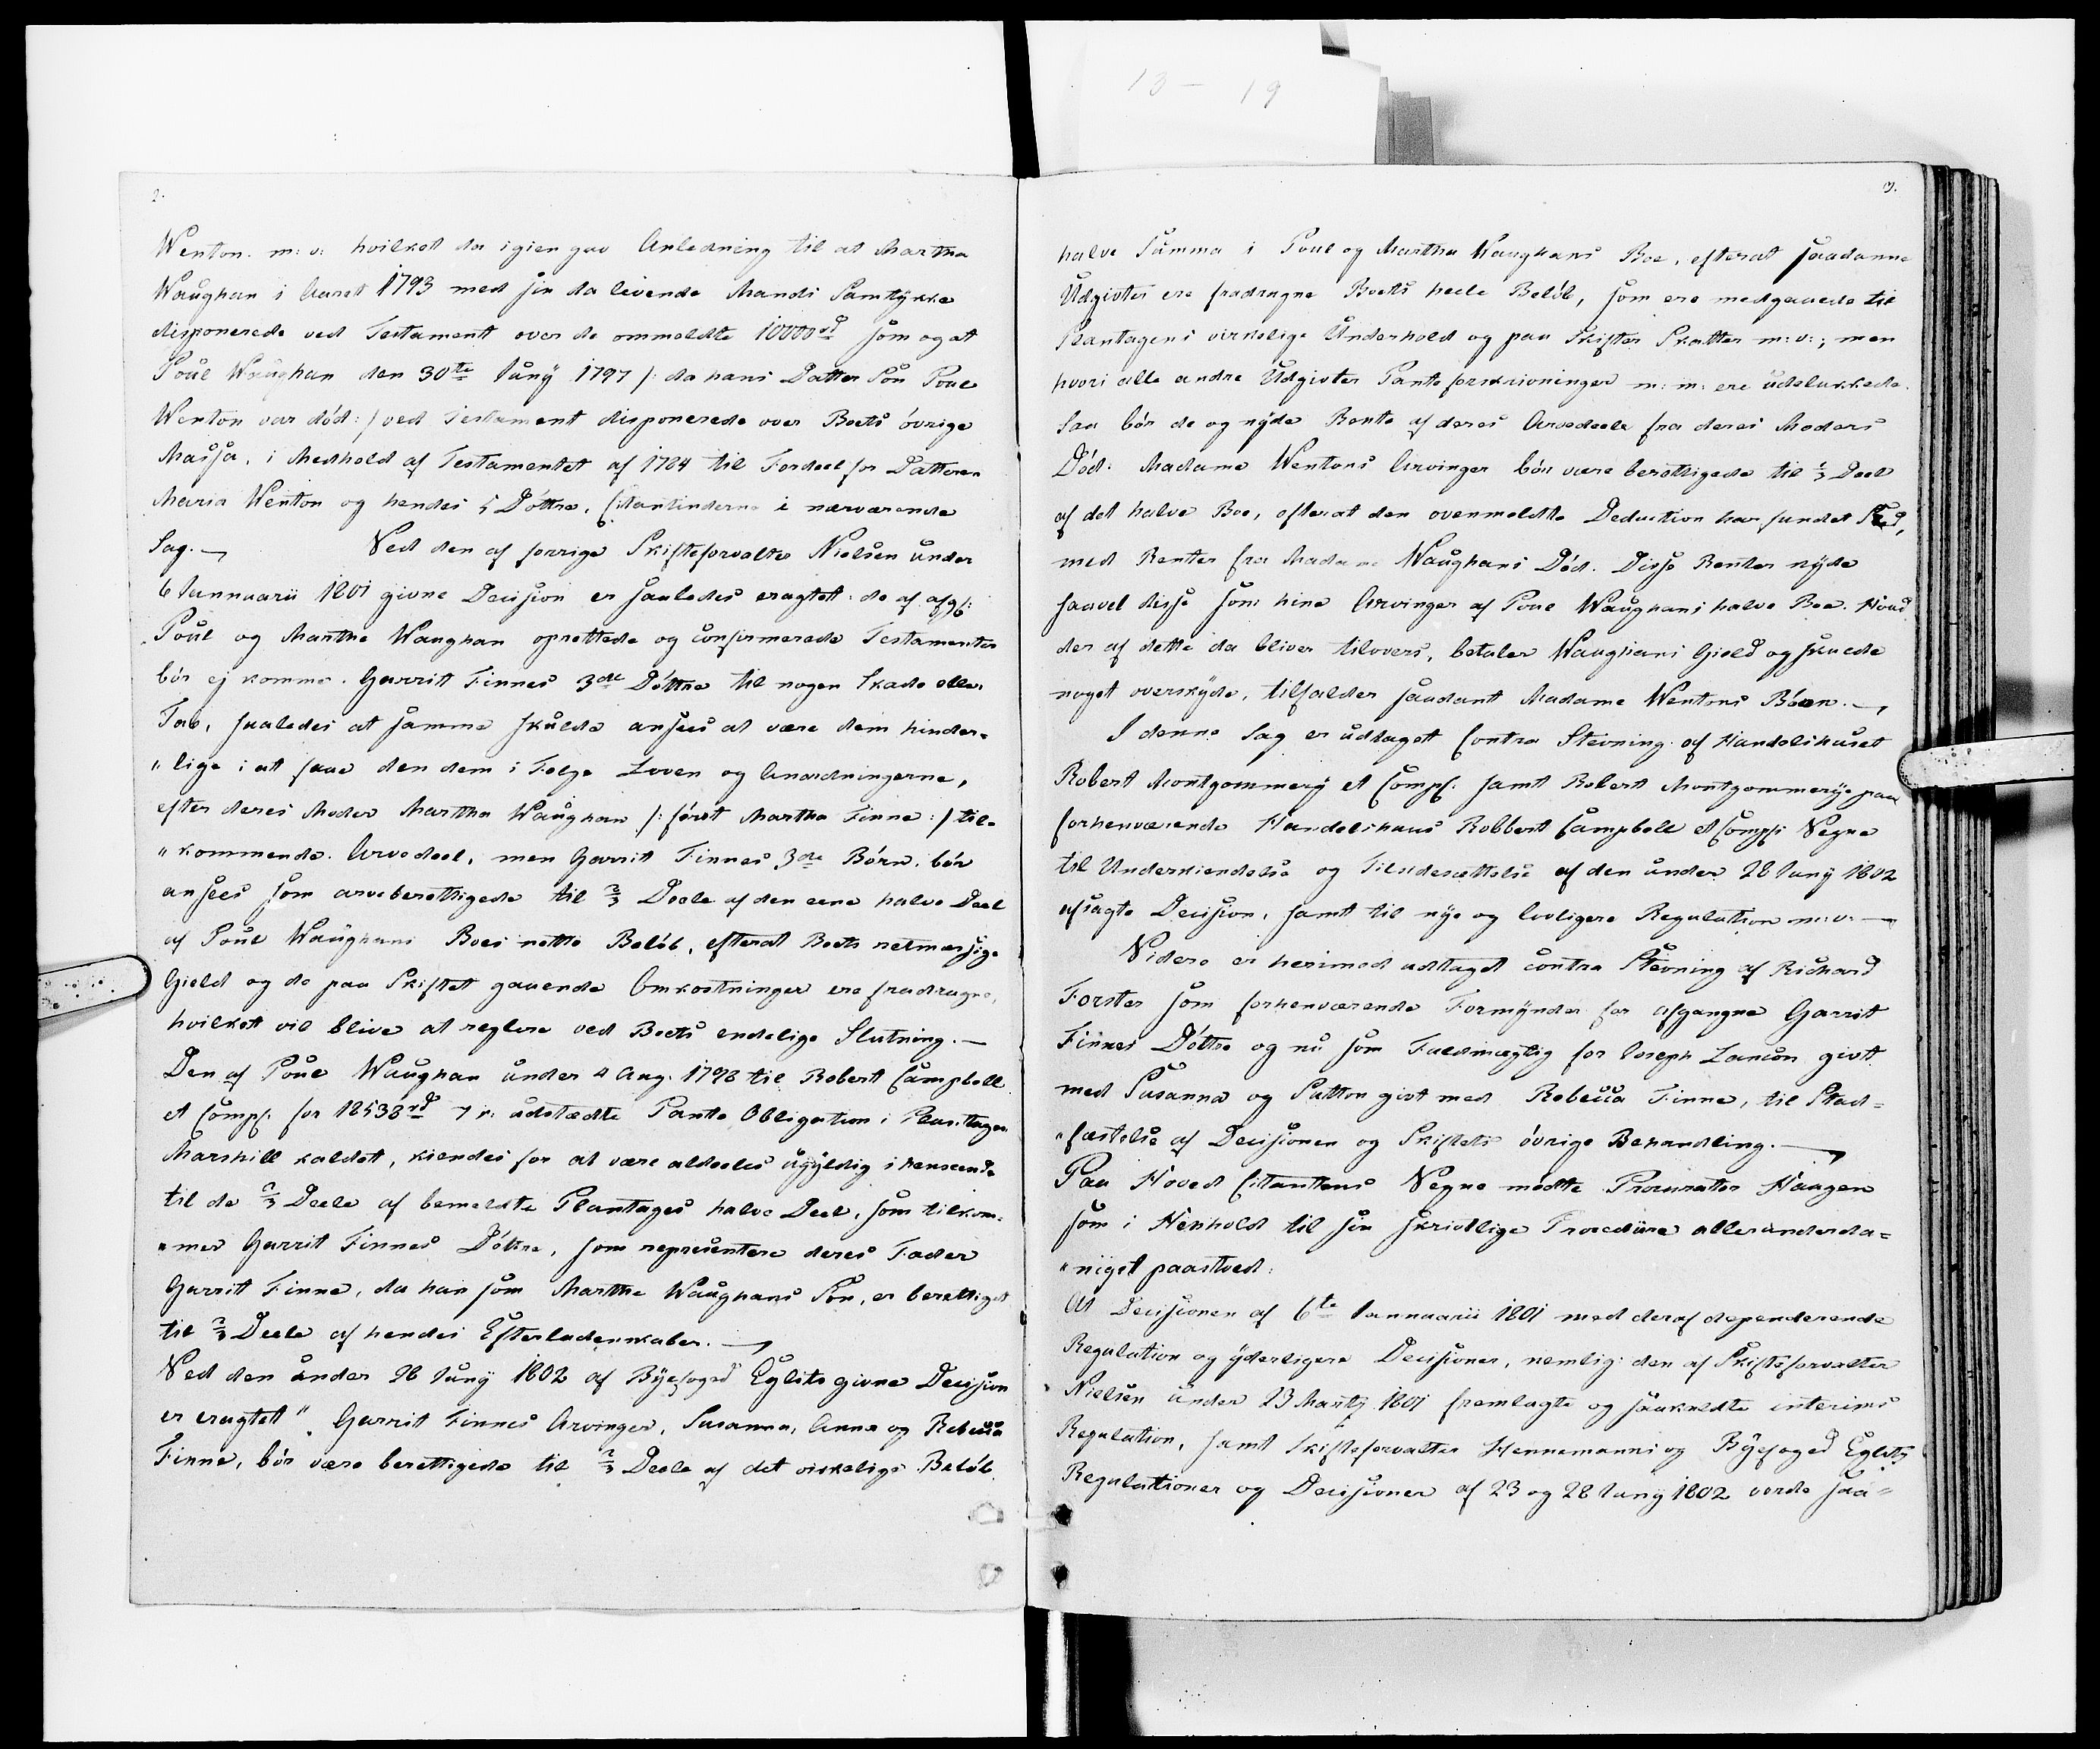 2.
Wenton. m: v: hvilket da igien gav Anledning til at Martha
Waughan i Aaret 1793 med sin da levende Mands Samtÿkke
disponerede ved Testament over de ommeldte 10000 rd som og at
Poul Waughan den 30te Junÿ 1797 /: da hans Datter Sön Poul
Wenton var död :/ ved Testament disponerede over Boets övrige
Massa, i Medhold af Testamentet af 1784 til Fordeel for Datteren
Maria Wenton og hendes 5 Döttre, Citantinderne i nærværende
Sag. —
Ved den af forrige Skifteforvalter Nielsen under
6 Januarii 1801 givne Decision er saaledes eragtet: de af afg:
Poul og Martha Waughan oprettede og confirmerede Testamenter
bör ej komme Garrit Finnes 3de Döttre til nogen Skade eller
Tab, saaledes at samme skulde ansees at være dem hinder-
"lige i at faae den dem i Fölge Loven og Anordningerne,
efter deres Moder Martha Waughan /: först Martha Finne :/ til-
"kommende Arvedeel, men Garrit Finnes 3de Börn bör
ansees som arveberettigede til 2/3 Deele af den eene halve Deel
af Poul Waughans Boes netto Belöb, efterat Boets retmæssige
Gield og de paa Skiftet gaaende Omkostninger ere fradragne,
hvilket vil blive at reglere ved Boets endelige Slutning. —
Den af Poul Waughan under 4 Aug: 1798 til Robert Campbell
et Comp: for 12538 rd 7 r: udstædte Pante Obligation i Plantagen
Marshill kaldet, kiendes for at være aldeeles ugÿldig i henseende
til de 2/3 Deele af bemeldte Plantages halve Deel, som tilkom-
"mer Garrit Finnes Döttre, som repræsentere deres Fader
Garrit Finne, da han som Martha Waughans Sön, er berettiget
til 2/3 Deele af hendes Efterladenskaber. —
Ved den under 28 Junÿ 1802 af Bÿefoged Eglits givne Decision
er eragtet "Garrit Finnes Arvinger, Susanna, Anna og Rebecca
Finne, bör være berettigede til 2/3 Deele af det virkelige Belöb
3.
halve Summa i Poul og Martha Waughans Boe, efterat saadanne
Udgivter ere fradragne Boets heele Belöb, som ere medgaaede til
Plantagens virkelige Underhold og paa Skifter Skatter m: v:; men
hvori alle andre Udgivter Panteforskrivninger m: m: ere udelukkede.
Saa bör de og nÿde Rente af deres Arvedeele fra deres Moders
Död: Madame Wentons Arvinger bör være berettigede til 1/3 Deel
af det halve Boe, efterat den ovenmeldte Deduction har fundet Sted,
med Renter fra Madame Waughans Död. Disse Renter nÿde
saavel disse som hine Arvinger af Poul Waughans halve Boe. Hvad
der af dette da bliver tilovers, betaler Waughans Gield og skulde
noget overskÿde, tilfalder saadant Madame Wentons Börn. —
I denne Sag er udtaget Contra Stevning af Handelshuset
Robert Montgommerÿ et Comp: samt Robert Montgommerÿe paa
forhenværende Handelshuus Robbert Campbell et Comp: Vegne
til Underkiendelse og Tilsidesættelse af den under 28 Junÿ 1802
afsagte Decision, samt til nÿe og lovligere Regulation m: v: —
Videre er herimod udtaget contra Stevning af Richard
Forster som forhenværende Formÿnder for afgangne Garrit
Finnes Döttre og nu som Fuldmægtig for Joseph Lancon givt
med Susanna og Sutton givt med Rebecca Finne, til Stad-
"fæstelse af Decisionen og Skiftets övrige Behandling. —
Paa Hoved Citantens Vegne mödte Procurator Haagen
som i Henhold til sin skrivtlige Procedure allerunderda-
"nigst paastoed:
At Decisionen af 6te Januarii 1801 med deraf dependerende
Regulation og ÿderligere Decisioner, nemlig: den af Skifteforvalter
Nielsen under 23 Martÿ 1801 fremlagte og saakaldte interims
Regulation, samt Skifteforvalter Hennemanns og Bÿefoged Eglits
Regulationer og Decisioner af 23 og 28 Junÿ 1802 vorde saa-
13 - 19